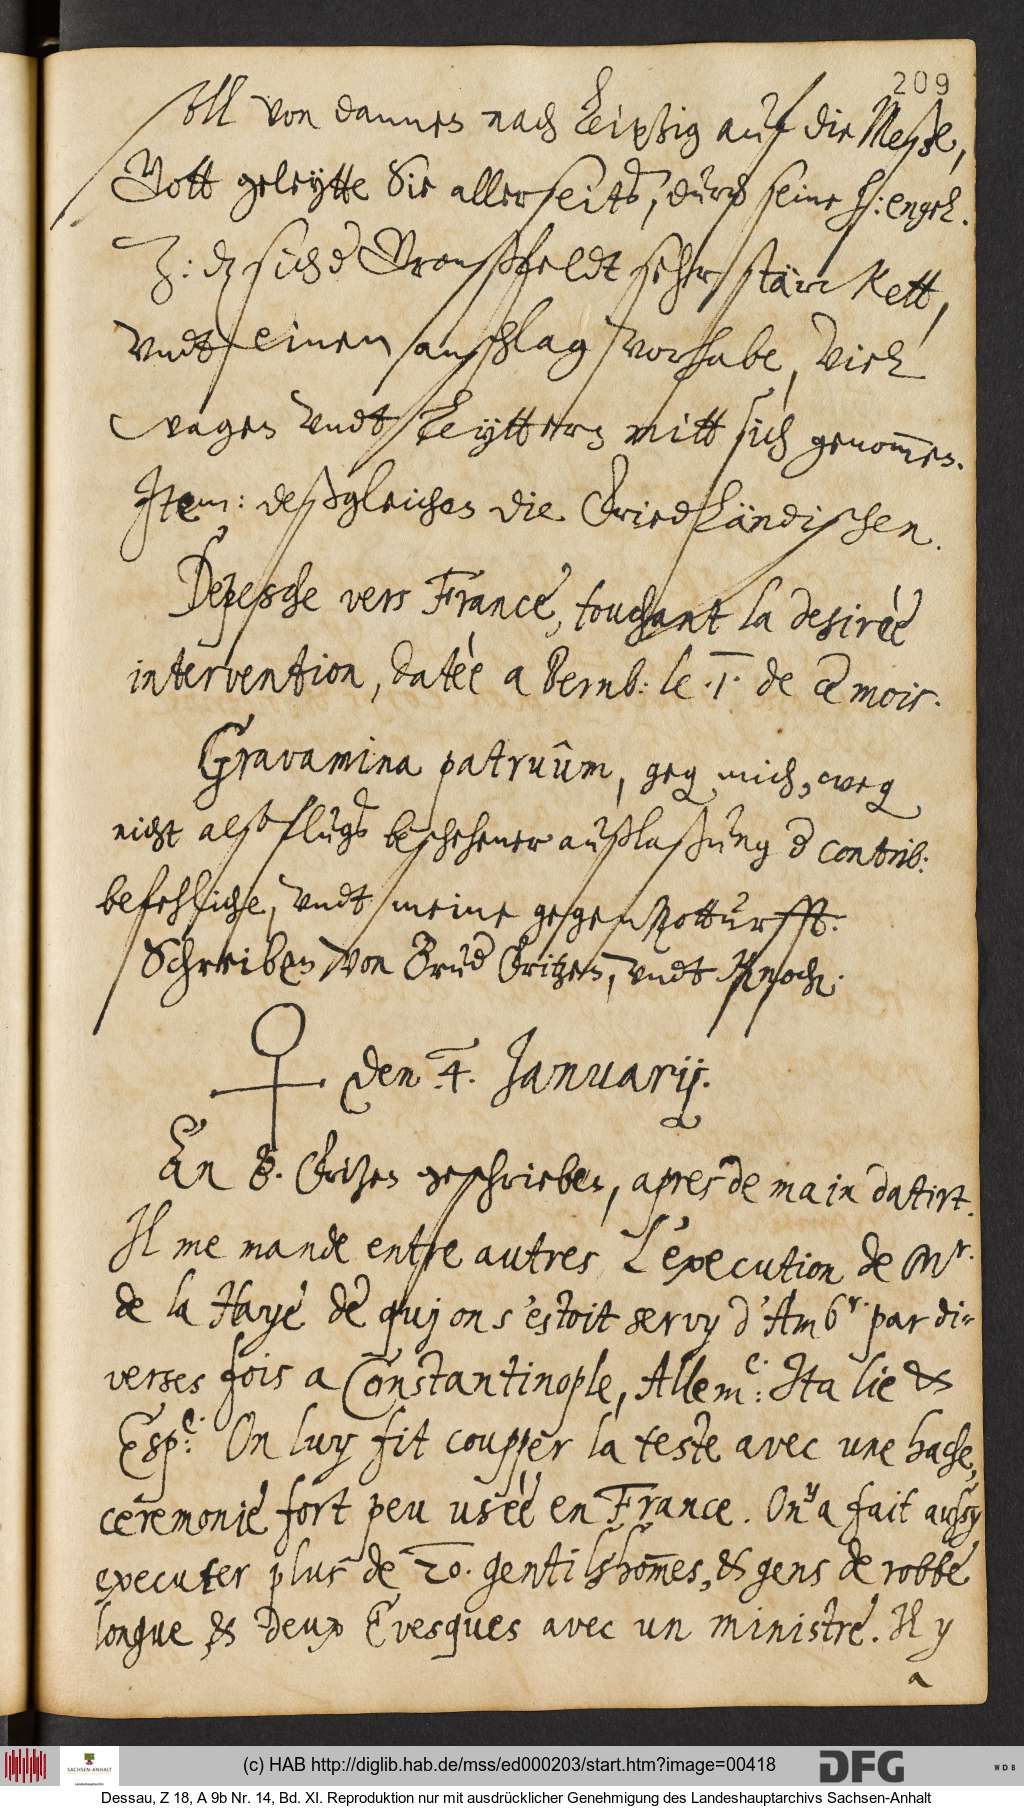 209
soll von dannen nach Leipzig auf die Meße,
Gott geleytte Sie allerseits, durch seine h: engel.
Z: dz sich d Gronßfeldt sehr stärckett,
vndt einen anschlag vorhabe, viel
wagen vndt Leyttern mitt sich genom̄en.
Item: deßgleichen die FriedLändischen.
Depesche vers France, touchant la desirèè
intervention, datèè a Bernb: le .1. de ce mois.
Gravamina patruûm, geg mich, weg
nicht alß flugs beschehener außlaßung d contrib:
befehliche, vndt meine gegen Notturfft.
Schreiben von Brud Fritzen, vndt Knoch.
♀ den 4. Januarij.
An B. Fritzen geschrieben, apres demain datirt.
Il me mande entre autres L'execution de Mr.
de la Haye de quj on s'estoit servy d'Ambr. par di-
verses fois a Constantinople, Alleme: Italie &
Espe: On luy fit coupper la teste avec une hache,
ceremonie fort peu usèè en France. On y a fait aussy
executer plus de 20. gentilshom̄es, & gens de robbe
longue & deux Evesques avec un ministre. Il y
a
(c) HAB http://diglib.hab.de/mss/ed000203/start.htm?image=00418
SACHSEN-ANHALT
Landeshauptarchiv
DFG
WDB
Dessau, Z 18, A 9b Nr. 14, Bd. XI. Reproduktion nur mit ausdrücklicher Genehmigung des Landeshauptarchivs Sachsen-Anhalt